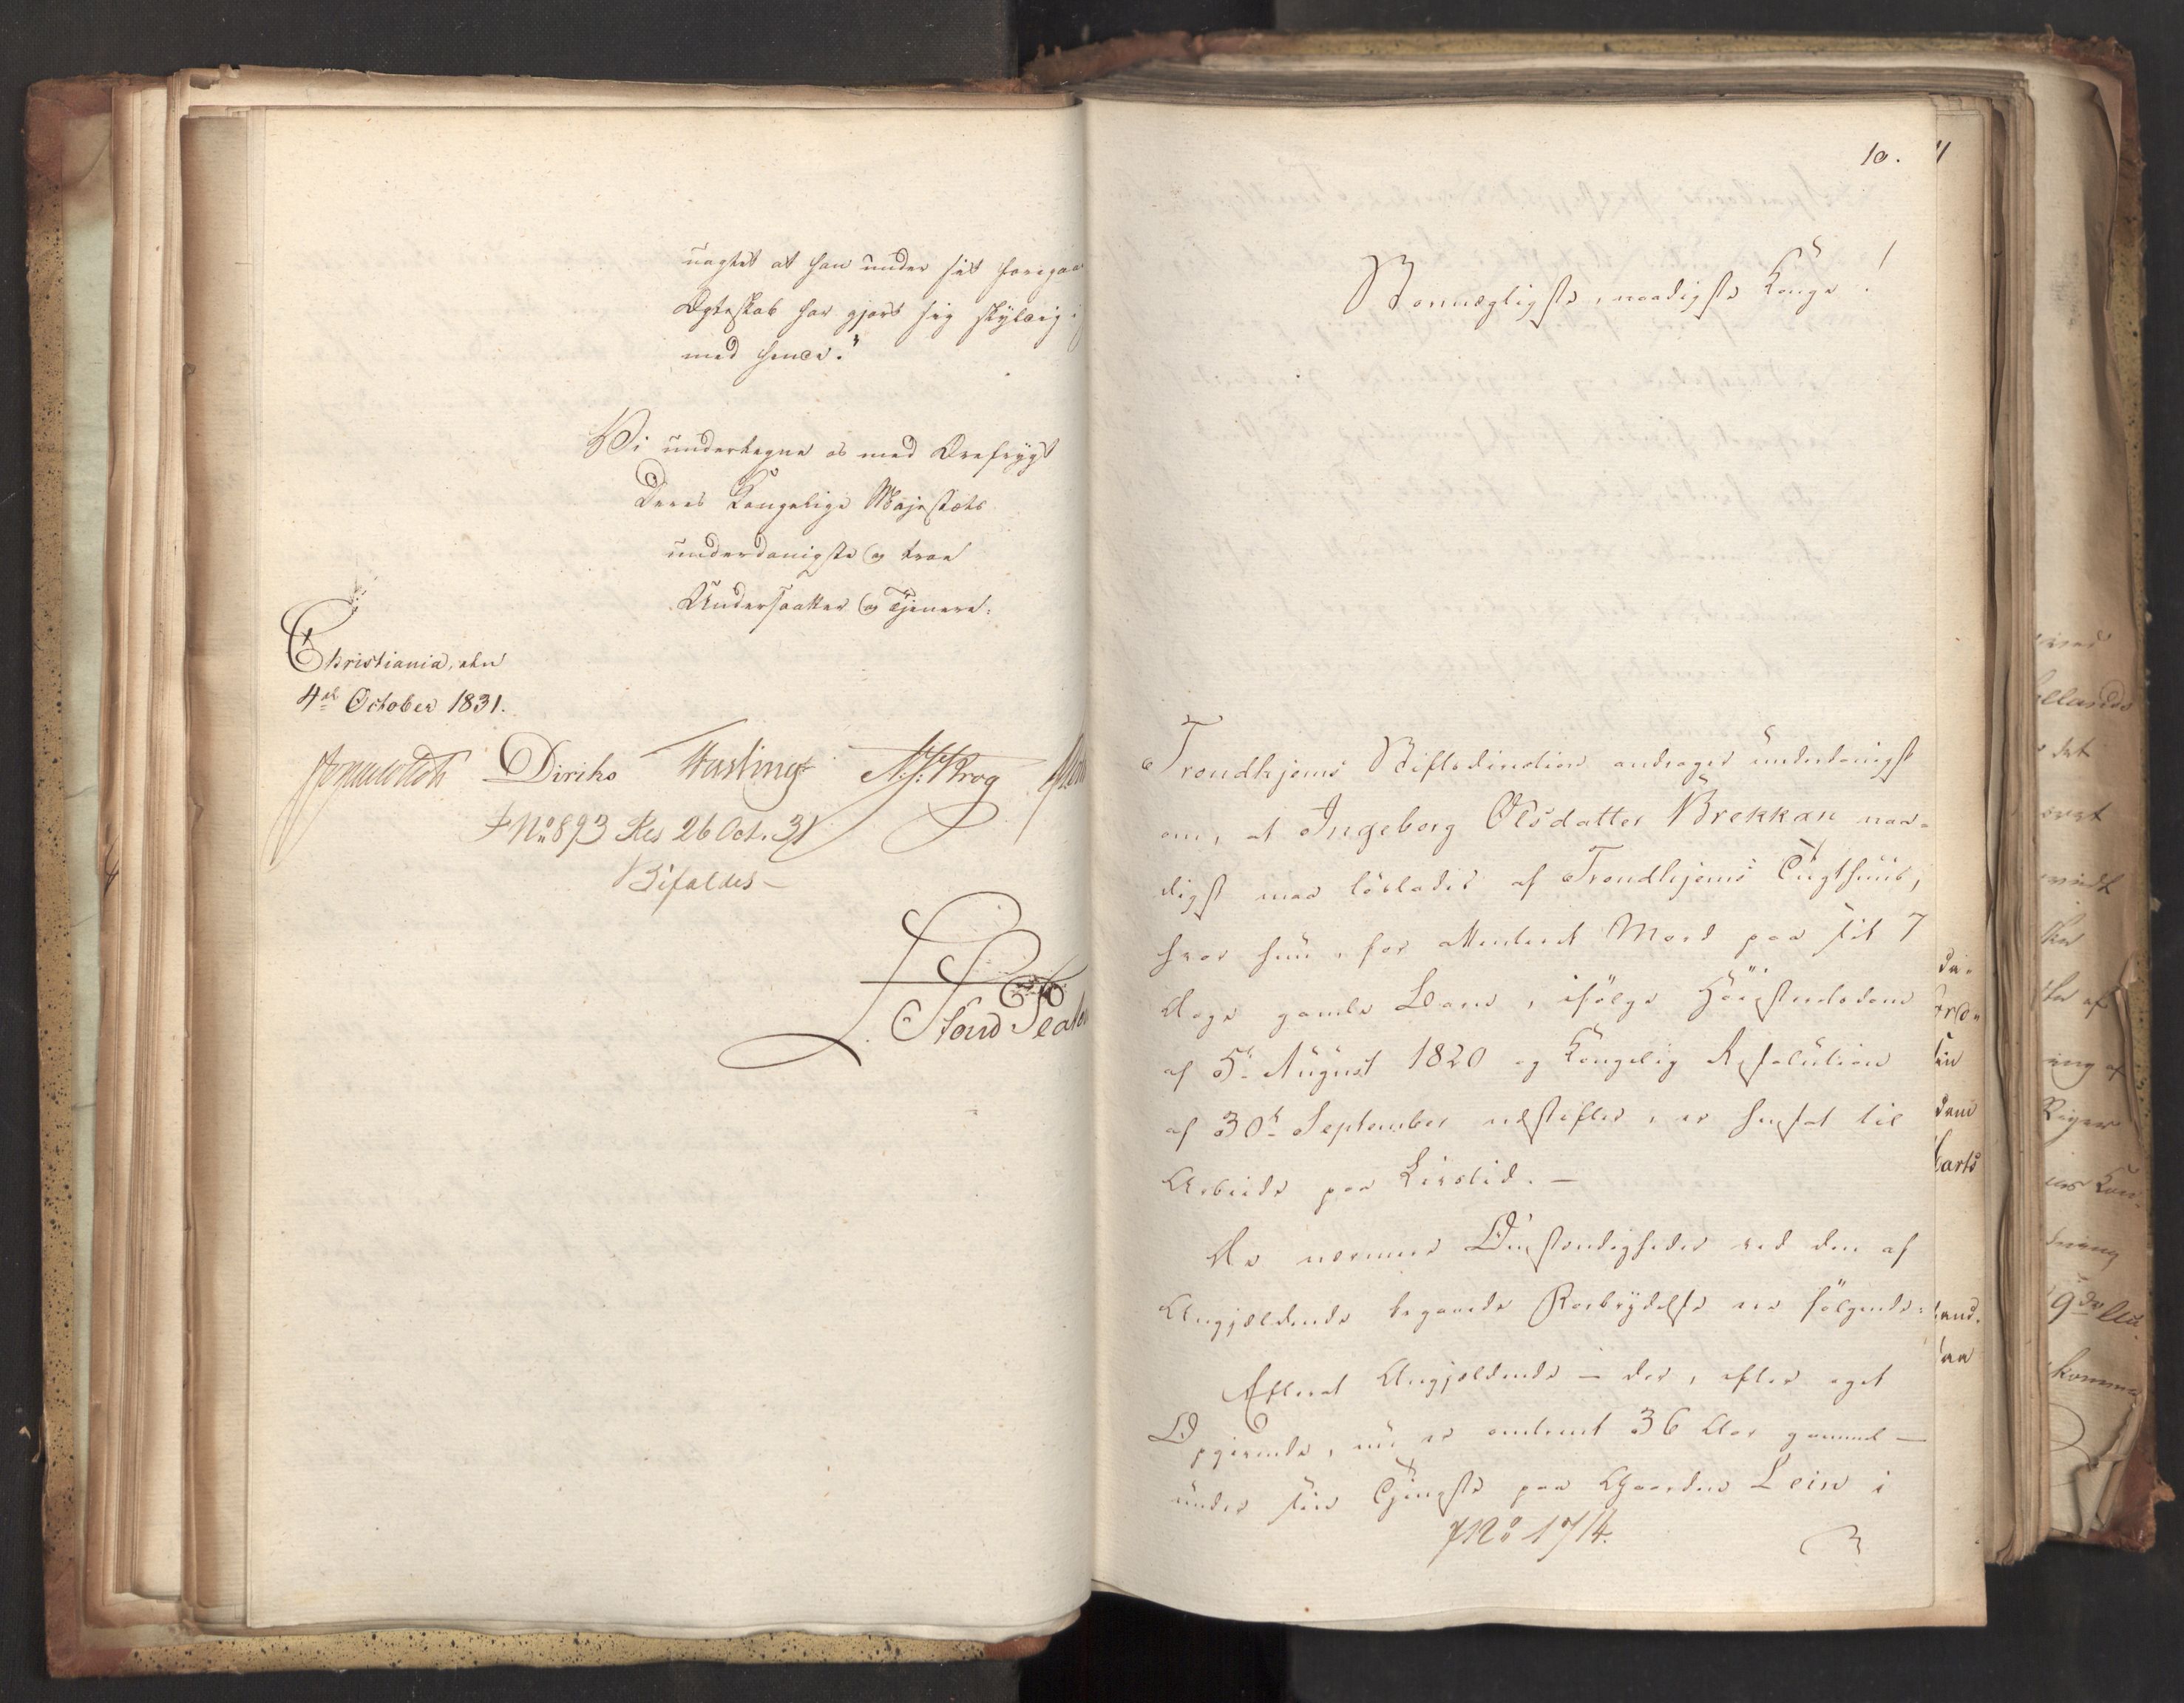 uagtet at han under sit foregaa
Ægteskab har gjort sig skyldig i
med hende."
Vi undertegne os med Ærefrygt
Deres Kongelige Majestæts
underdanigste og troe
Undersaatter og Tjenere.
Christiania, den
4de October 1831.
Diriks N. J. Krog
FNo 893 Res 26 Oct. 31
Bifaldes
10.
Stormægtigste, naadigste Konge!
Trondhjems Stiftsdirection andrager underdanigst
om, at Ingeborg Olsdatter Brekkan naa-
digst maa løslades af Trondhjems Tugthuus,
hvor hun, for attenteret Mord paa sit 7
Uger gamle Barn, ifølge Høiesteretsdom
af 5te August 1820 og Kongelig Resolution
af 30te September næstefter, er hensat til
Arbeide paa Livstid. —
De nærmere Omstændigheder ved den af
Angjældende begaaede Forbrydelse ere følgende:
Efterat Angjældende — der, efter eget
Opgivende, nu er omtrent 36 Aar gammel —
under sin Tjeneste paa Gaarden Lein i
JNo 1714.